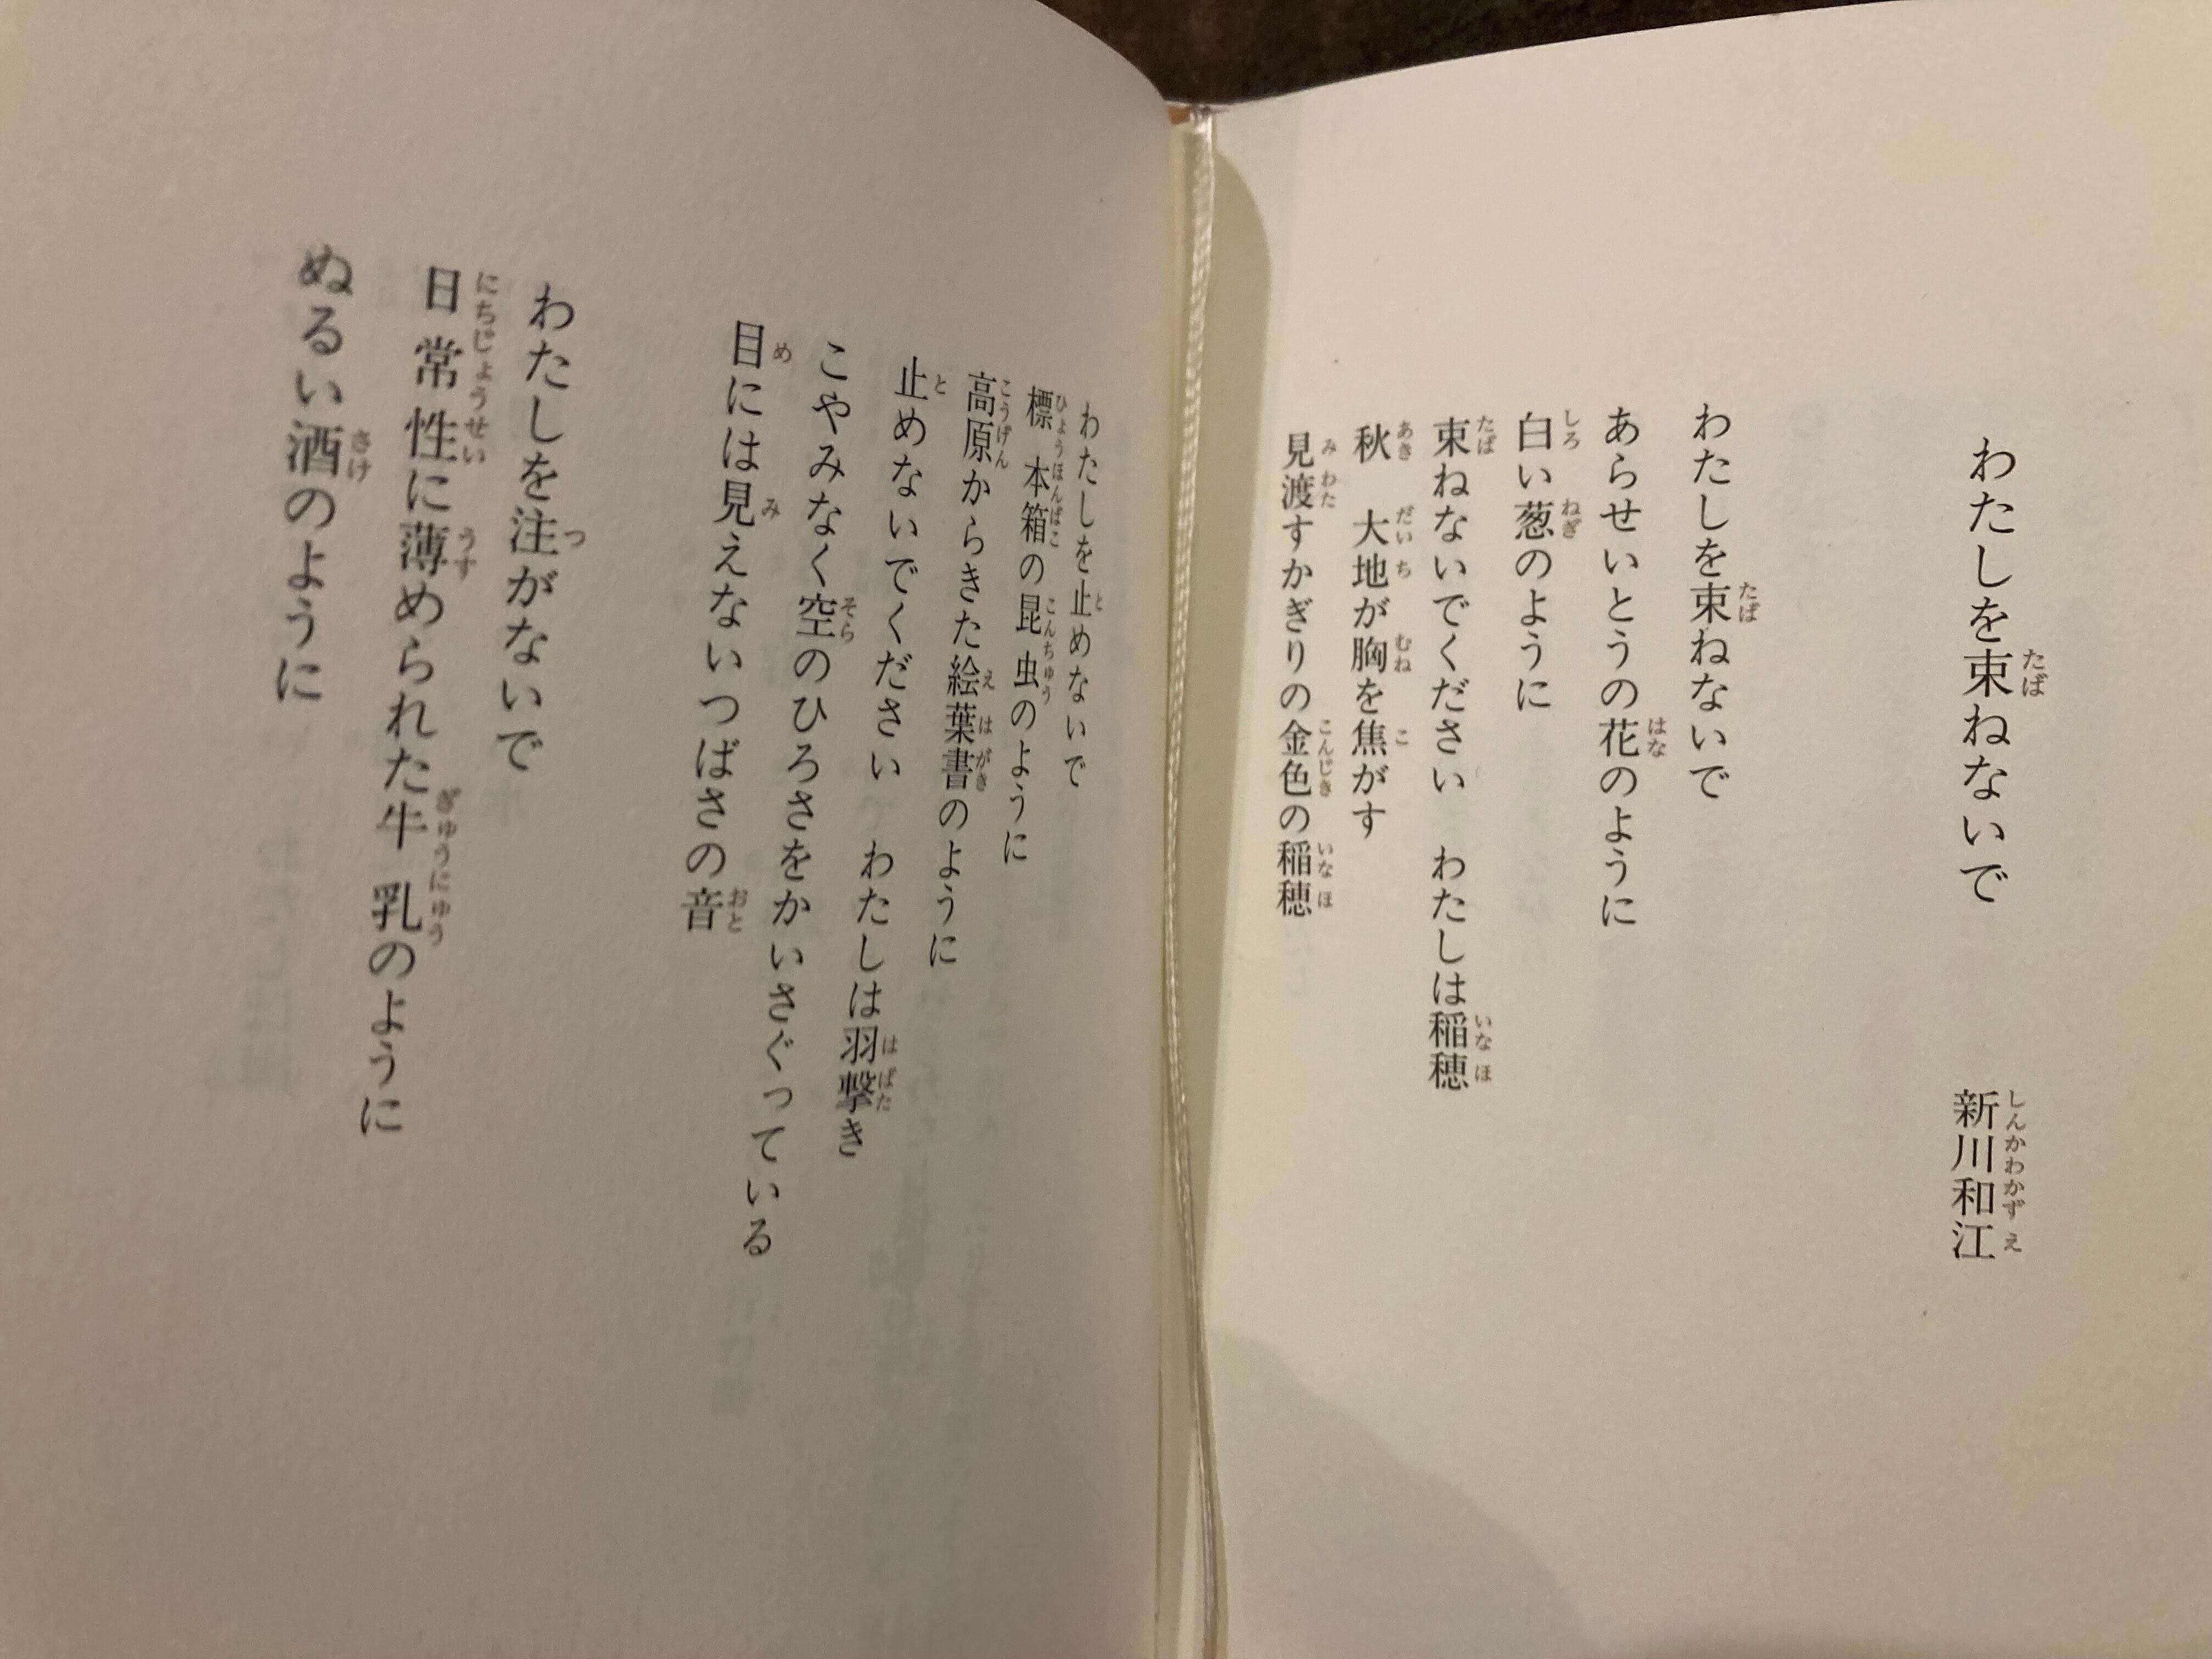 わたしを束ねないで　新川和江
わたしを束ねないで
あらせいとうの花のように
白い葱のように
束ねないでください　わたしは稲穂
秋　大地が胸を焦がす
見渡すかぎりの金色の稲穂
わたしを止めないで
標本箱の昆虫のように
高原からきた絵葉書のように
止めないでください　わたしは羽撃き
こやみなく空のひろさをかいさぐっている
目には見えないつばさの音
わたしを注がないで
日常性に薄められた牛乳のように
ぬるい酒のように